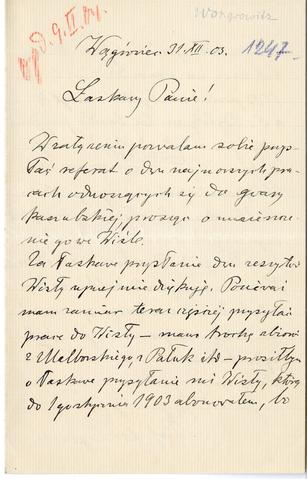 d. 9. II. 04.
Wongrowitz
1247
Wągówiec 31. XII. 03.
Łaskawy Panie!
W załączeniu pozwalam sobie przy-
słać referat o dwu najnowszych pra-
cach odnoszących się do gwary
kaszubskiej, prosząc o umieszcze-
nie go we Wiśle.
Za łaskawe przysłanie dwu zeszytów
Wisły uprzejmie dziękuję. Ponieważ
mam zamiar teraz częściej przysyłać
prace do Wisły – mam trochę zbiorów
z Malborskiego, z Pałuk itd – prosiłbym
o łaskawe przysyłanie mi Wisły, którą
do 1go stycznia 1903 abonowałem, bo